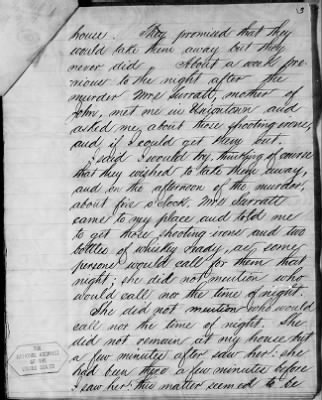 3
house. They promised that they
would take them away but they
never did. About a week pre-
vious to the night after the
murder Mrs Surratt, mother of
John, met me in Uniontown and
asked me, about those shooting irons,
and, if I could get them out.
I said I would try, thinking of course
that they wished to take them away,
and on the afternoon of the murder,
about five o'clock, Mrs Surratt
came to my place and told me
to get those shooting irons and two
bottles of whiskey ready, as some
persons would call for them that
night; she did not mention who
would call nor the time of night.
She did not mention who would
call nor the time of night. She
did not remain at my house but
a few minutes after I saw her: she
had been there a few minutes before
I saw her: this matter seemed to be
THE
NATIONAL ARCHIVES
OF THE
UNITED STATES